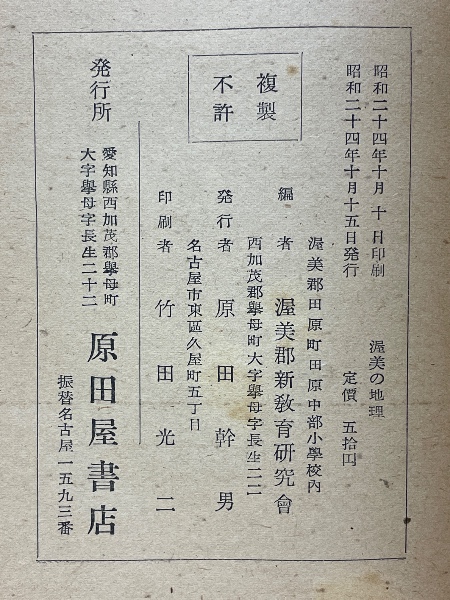 昭和二十四年十月 十 日印刷
昭和二十四年十月十五日発行
渥美の地理
定價 五拾円
複製
不許
渥美郡田原町田原中部小學校內
編者 渥美郡新教育硏究會
西加茂郡擧母町大字擧母字長生二二
発行者 原田幹男
名古屋市東區久屋町五丁目
印刷者 竹田光二
発行所
愛知縣西加茂郡擧母町
大字擧母字長生二十二
原田屋書店
振替名古屋一五九三番